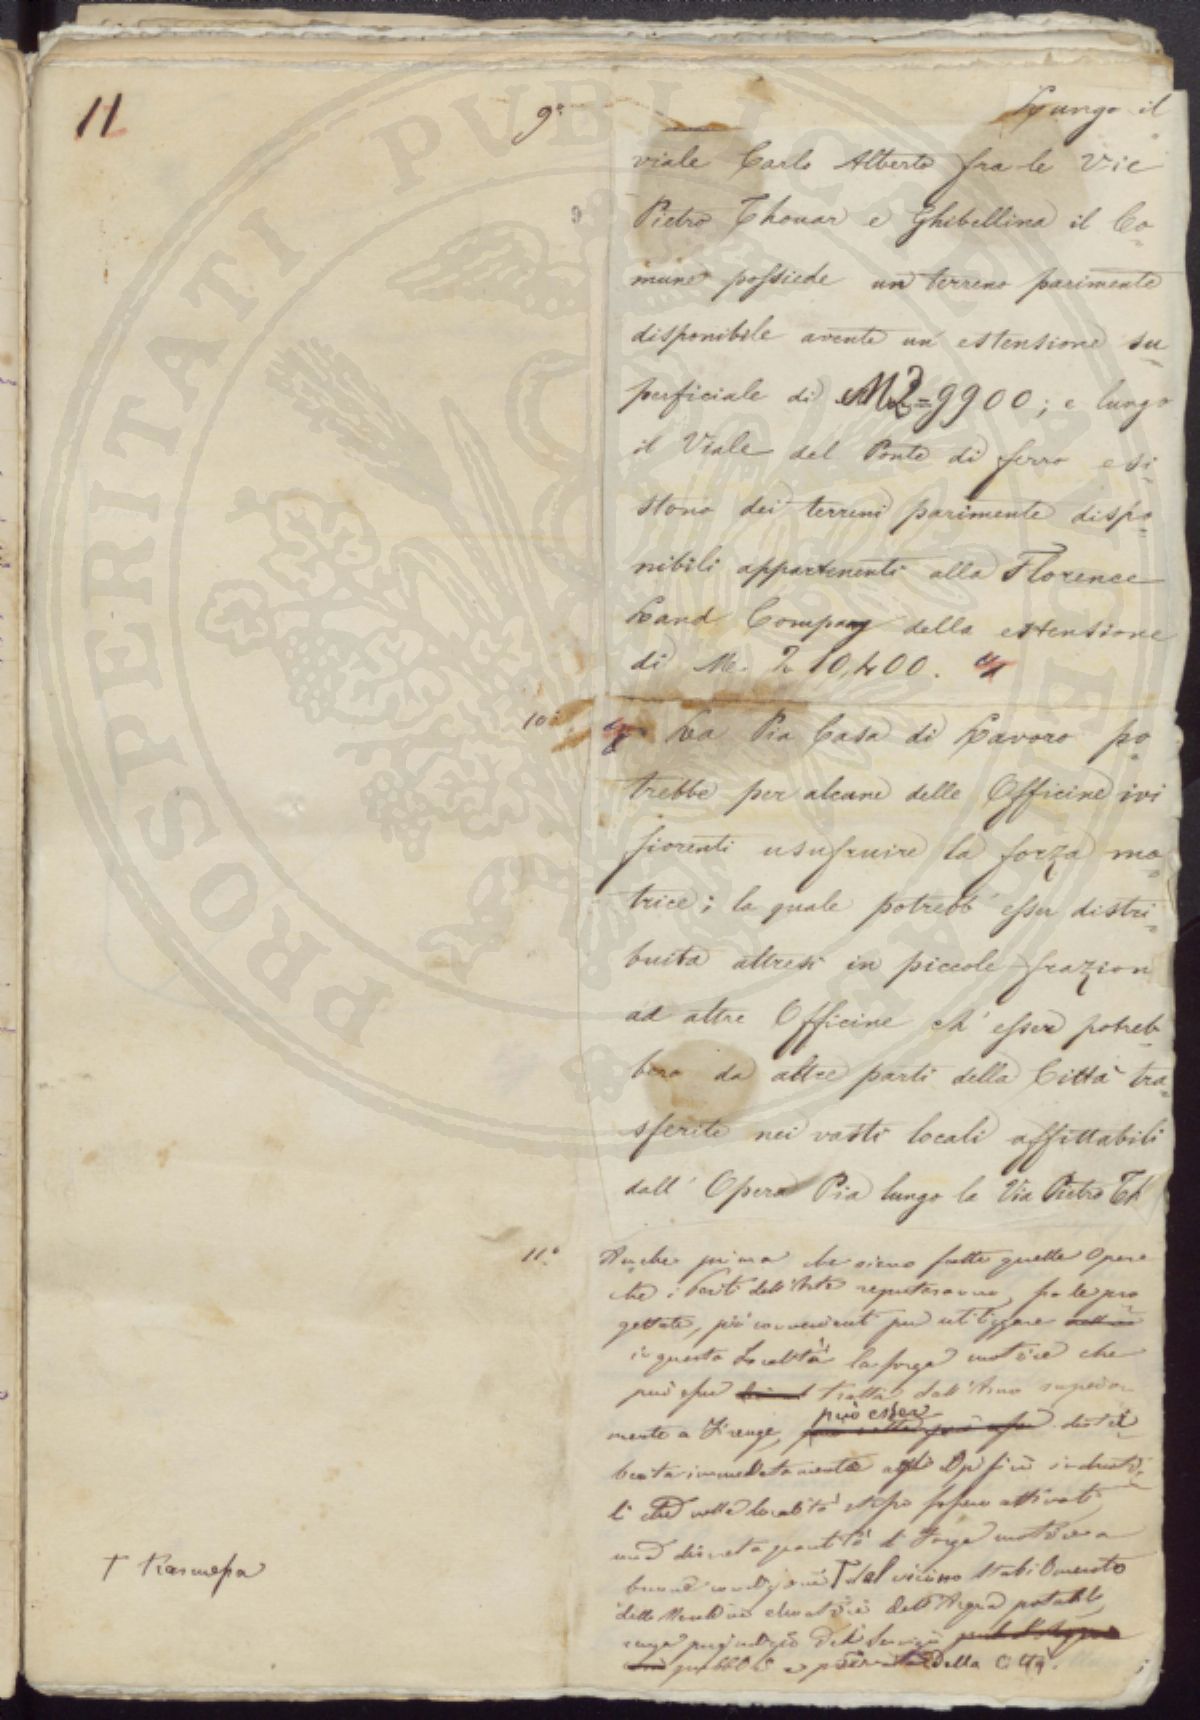 11
9°
Lungo il
viale Carlo Alberto fra le Vie
Pietro Thouar e Ghibellina il Co-
mune possiede un terreno parimente
disponibile avente un' estensione su-
perficiale di M2=9900; e lungo
il Viale del Ponte di ferro esi-
stono dei terreni parimente dispo-
nibili appartenenti alla Florence
Land Company della estensione
di Me. 2 10,400.
10°
La Pia Casa di Lavoro po-
trebbe per alcune delle Officine ivi
fiorenti usufruire la forza mo-
trice; la quale potrebb' esser distri-
buita altresì in piccole frazion
ad altre Officine ch' esser potreb-
bero da altre parti della Città tra-
sferite nei vasti locali affittabili
dall' Opera Pia lungo la Via Pietro Th
11°
Anche prima che sieno fatte quelle Opere
che i Periti dell'Arte reputeranno, fra le pro
gettate, più convenienti per utilizzare
in questa Località la forza motrice che
può esser tratta dall'Arno superior-
mente a Firenze, può esser distri-
buita immediatamente agli Opifici industria-
li che nella località stessa fossero attivati
una discreta quantità di Forza motrice a
buone condizioni T dal vicino Stabilimento
delle Macchine elevatrici dell'Acqua potabile,
senza pregiudizio del Servizio
pubblico e privato della Città.
T Trasmessa
PROSPERITATI PUBLICAE AUGENDAE